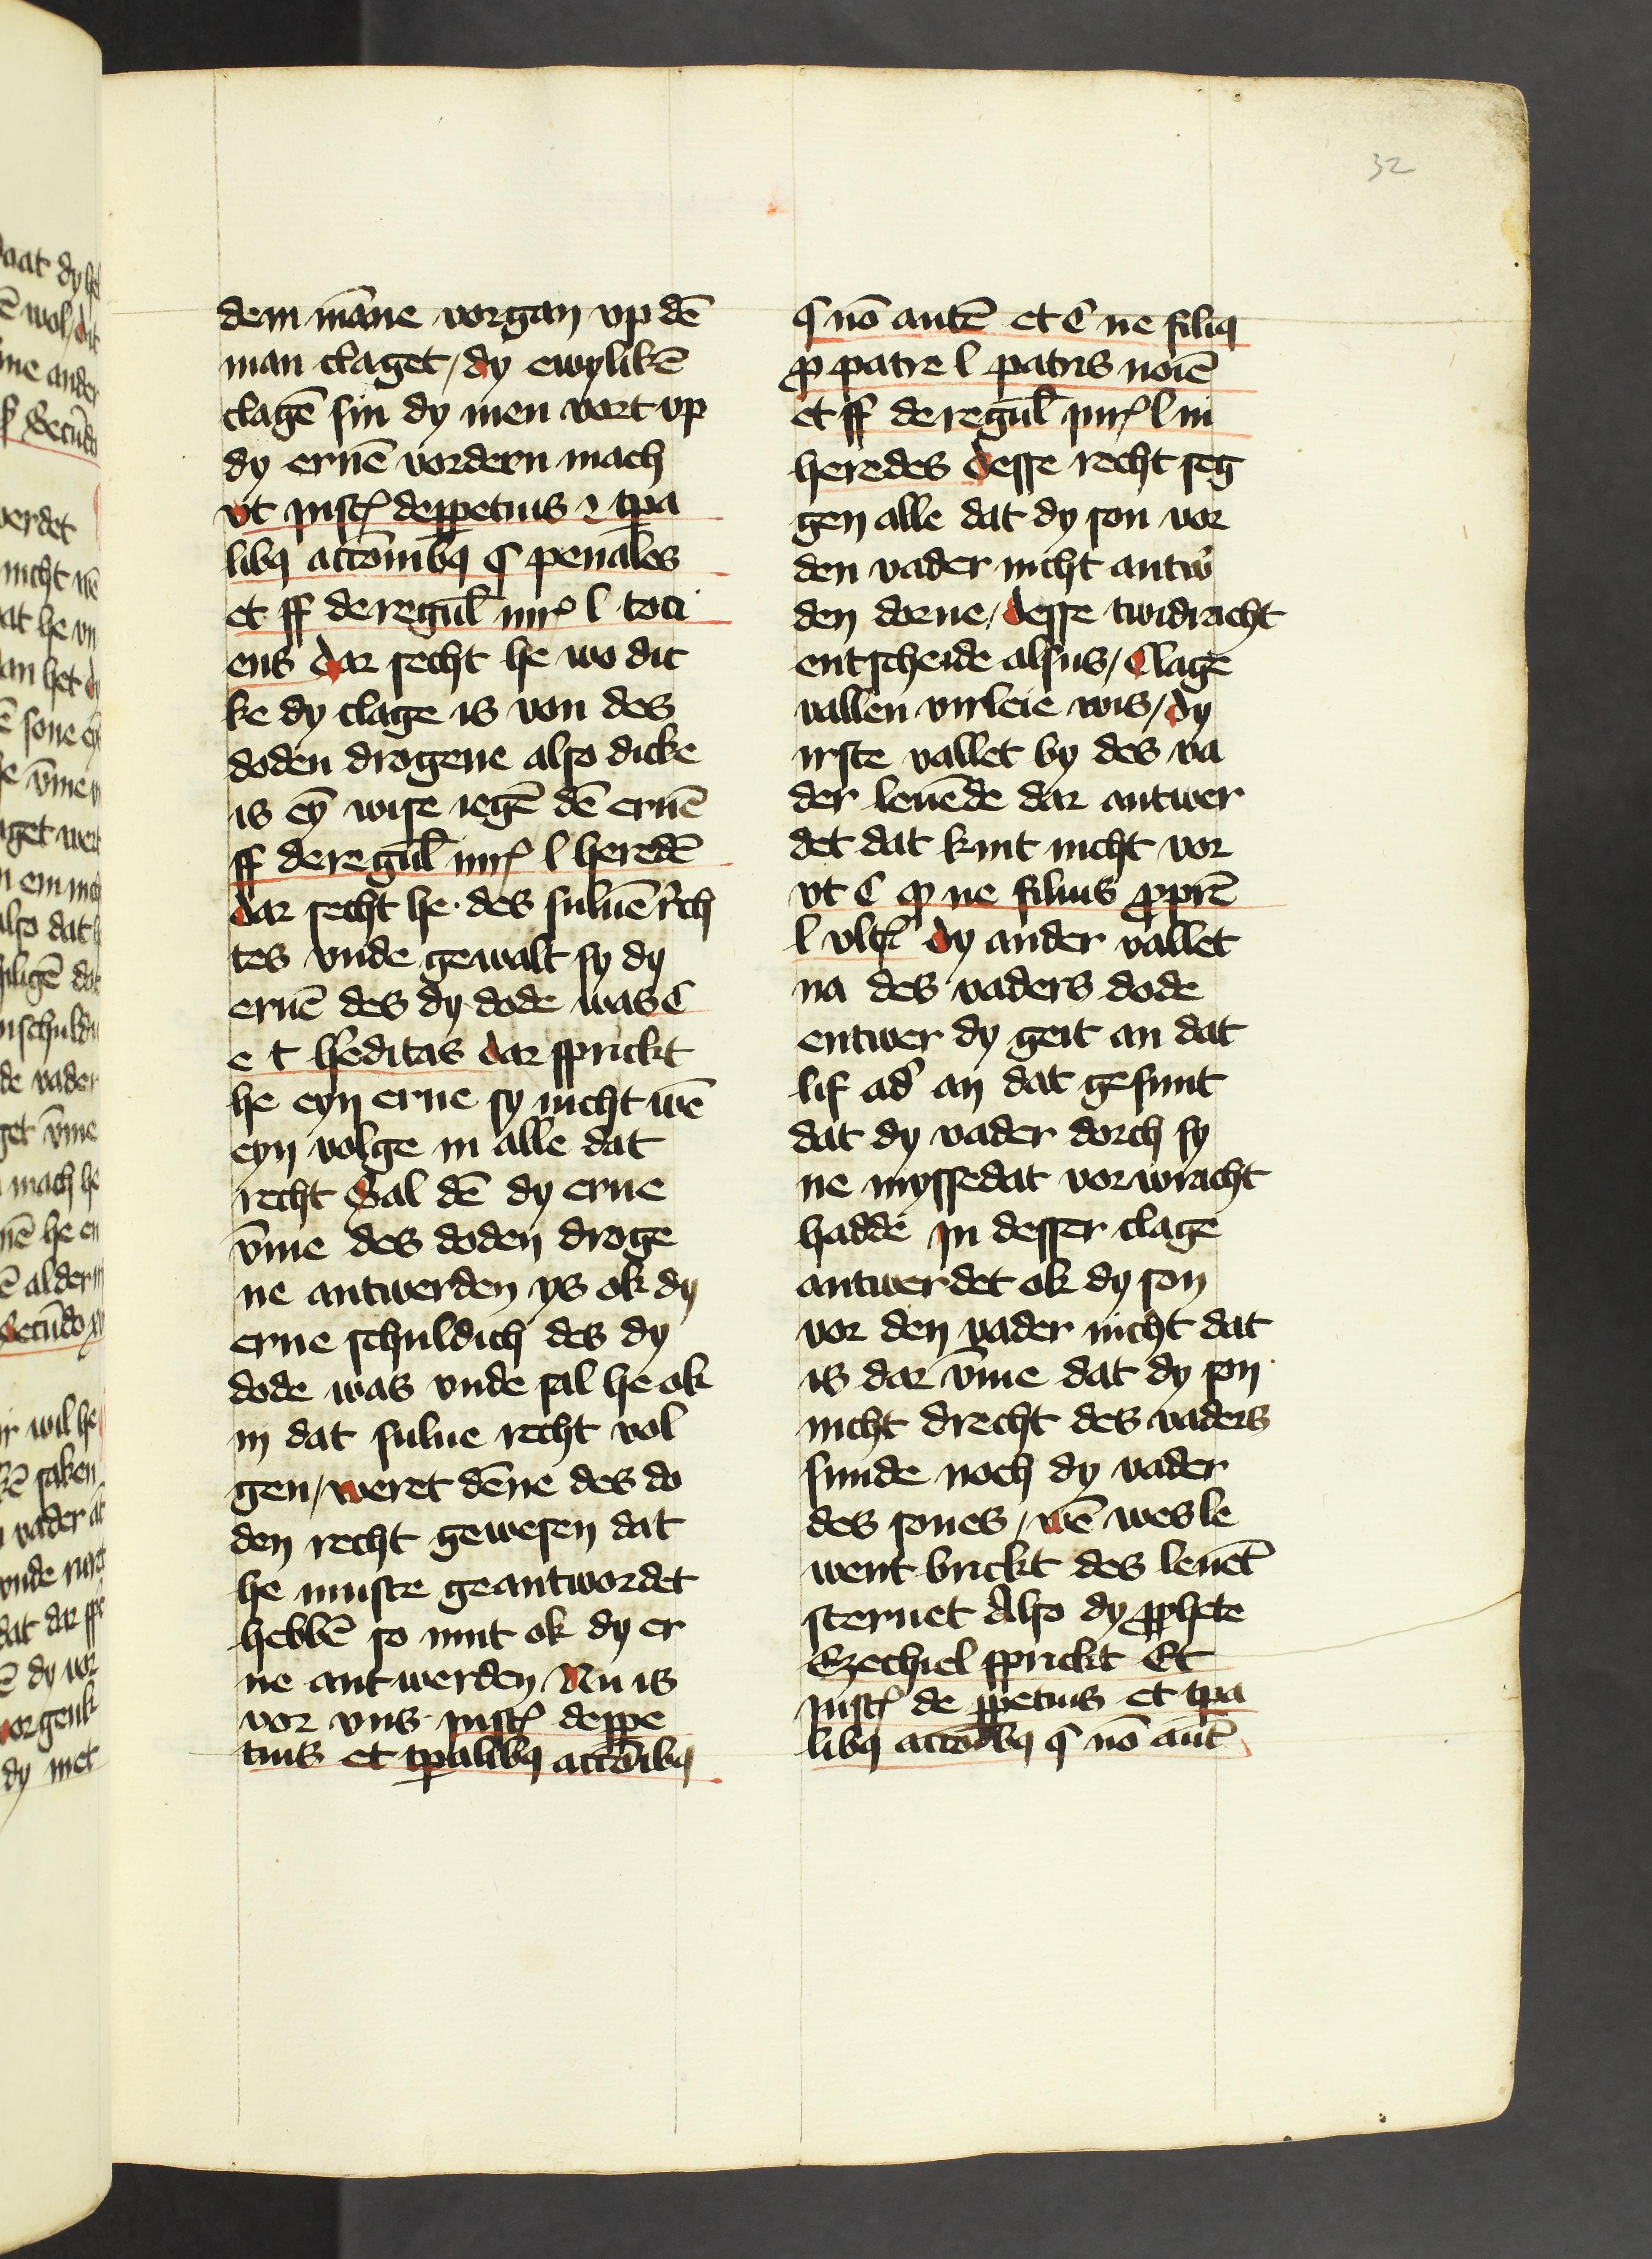 32
dem māne vorgan vp dē
man claget / dy ewylikē
clagē sin dy men vort vp
dy eruē vordern mach
vt jnstꝭ de ꝑpetuis ⁊ tꝑa
libꝫ actōnibꝫ § penales
et ff de regul̄ iurꝭ l toci
ens dar secht he wo dic
ke dy clage is von des
doden drogene also dicke
is eȳ wise iegē dē eruē
ff de regul̄ iurꝭ l heredē
dar secht he des suluē rech
tes vnde gewalt sy dy
eruē des dy dode was C
e t h̄editas dar sprickt
he eyn erue sy nicht wē
eyn volge in alle dat
recht Sal dē dy erue
vm̄e des doden droge
ne antwerden ys ok dy
erue schuldich des dy
dode was vnde sal he ok
in dat sulue recht vol
gen / weret dēne des do
den recht gewesen dat
he muste geantwordet
hebbē so mut ok dy er
ue antwerden Nu is
vor vns jnstꝭ de ꝑpe
tuis et tꝑalibꝫ actōibꝫ
§ nō autē et C ne filiꝰ
ꝓ patre l patris noīe
et ff de regul̄ iurꝭ l in
heredes desse recht seg
gen alle dat dy son vor
den vader nicht antw̄
den dorue / desse twidracht
entscheide alsus / Clage
vallen virleie wis / dy
irste vallet by des va
der leuēde dar antwer
det dat kint nicht vor
vt C ne filius ꝓ pr̄e
l vltꝭ dy ander vallet
na des vaders dode
entwer dy geit an dat
lif ad̄ an dat gesunt
dat dy vader dorch sy
ne myssedat vorwracht
hadde jn desser clage
antwerdet ok dy son
vor den vader nicht dat
is dar vm̄e dat dy son
nicht drecht des vaders
sunde noch dy vader
des sones / wē wes le
went brickt des leuēt
steruet Also dy ꝓphete
Ezechiel sprickt Et
jnstꝭ de ꝑpetuis et tꝑa
libꝫ actōibꝫ § nō aut̄